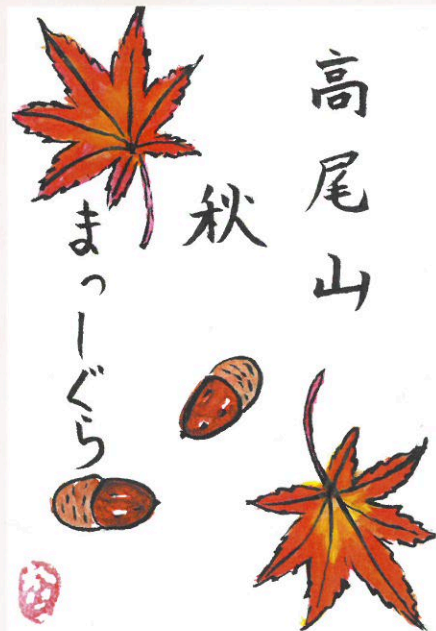 高尾山
秋
まっしぐら